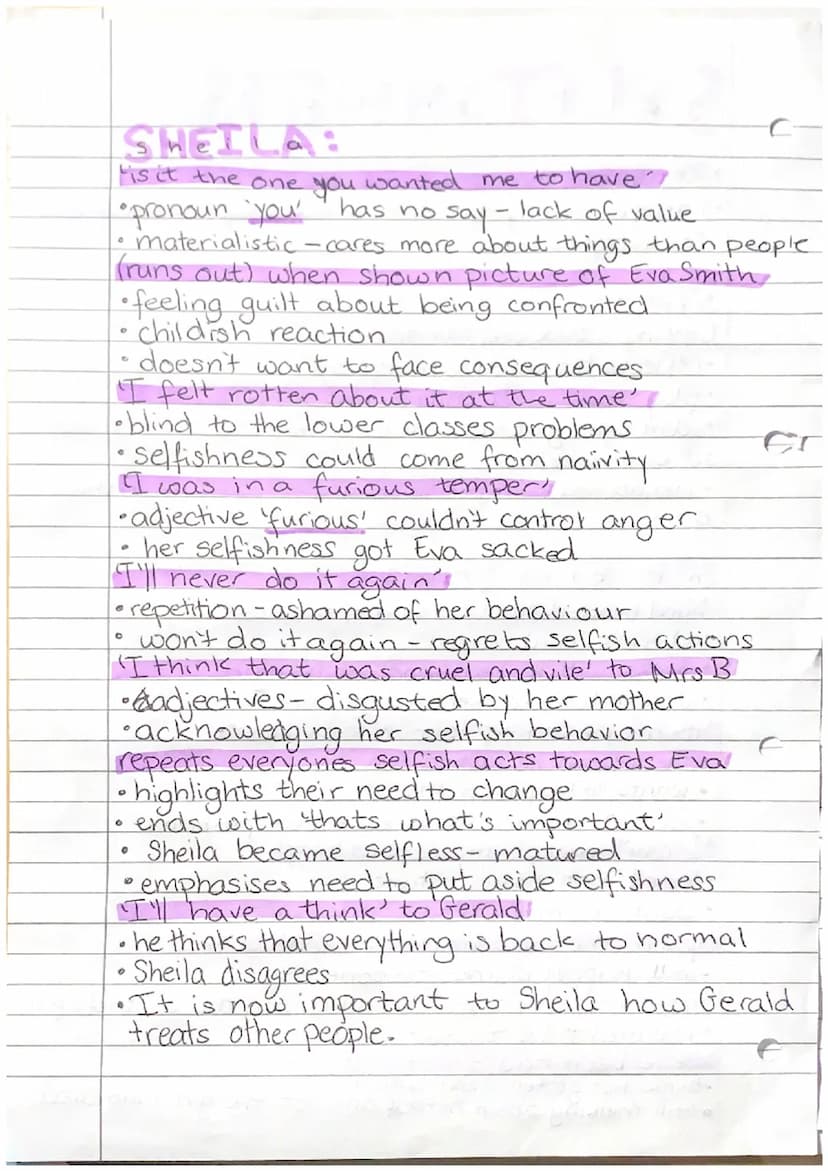 SHEILA:
Sheila
'is it the one you wanted me to have'
• pronoun 'you' has no say - lack of value
• materialistic - cares more about things than people
(runs out) when shown picture of Eva Smith
• feeling guilt about being confronted
• childish reaction
• doesn't want to face consequences
'I felt rotten about it at the time'
• blind to the lower classes problems
• selfishness could come from naivity
'I was in a furious temper'
• adjective 'furious' couldn't control anger
• her selfishness got Eva sacked
I'll never do it again'
• repetition - ashamed of her behaviour
• won't do it again - regrets selfish actions
'I think that was cruel and vile' to Mrs B
• adjectives - disgusted by her mother
• acknowledging her selfish behavior
repeats everyones selfish acts towards Eva
• highlights their need to change
• ends with 'thats what's important'
• Sheila became selfless - matured
• emphasises need to put aside selfishness
'I'll have a think' to Gerald
• he thinks that everything is back to normal
• Sheila disagrees
• It is now important to Sheila how Gerald
treats other people.